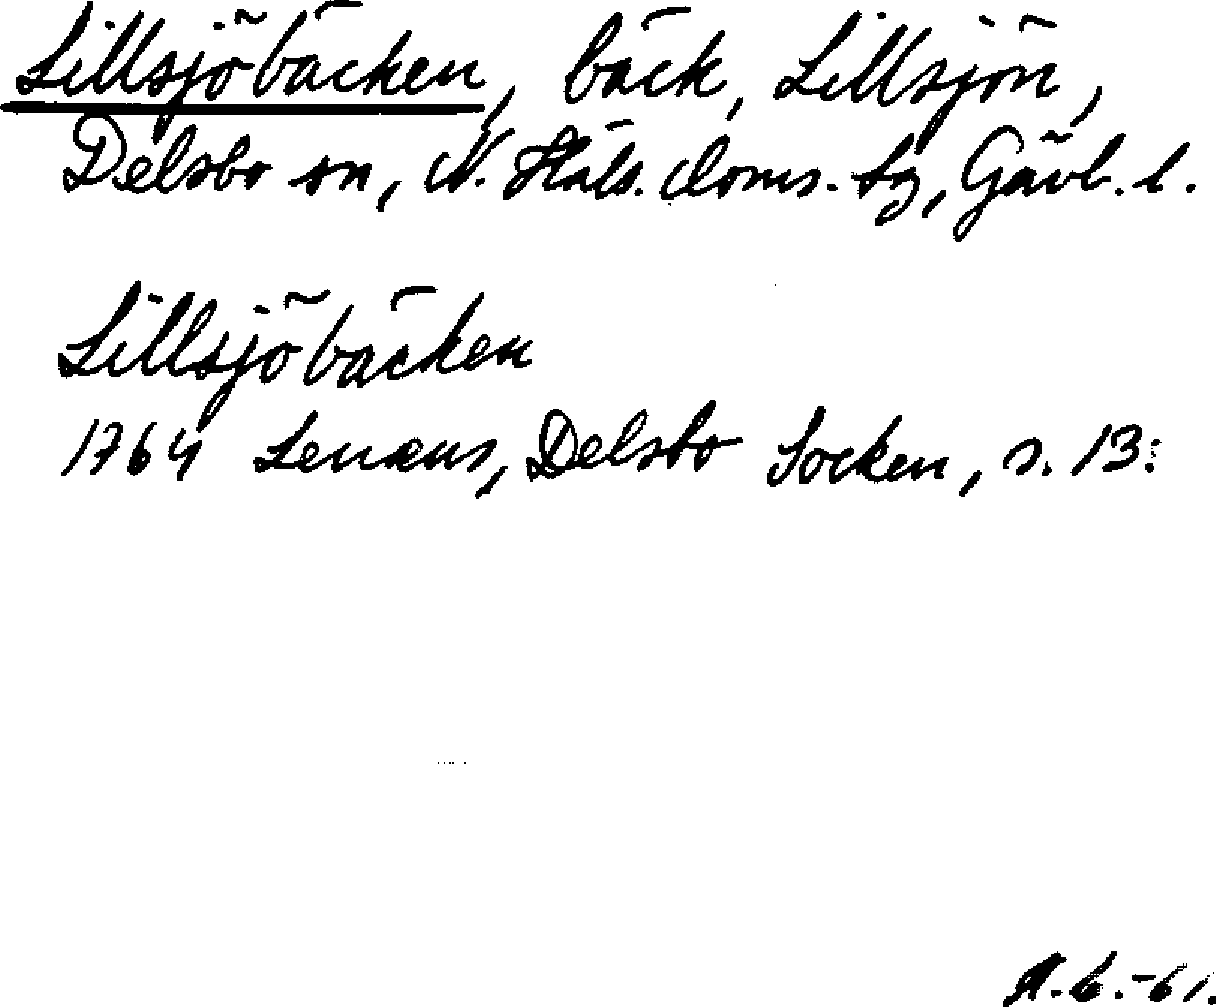 Lillsjöbäcken, bäck, Lillsjön,
Delsbo sn, N. Häls. doms. tg, Gävl. l.
Lillsjöbäcken
1764 Lenæus, Delsbo Socken, s. 13:
-61.